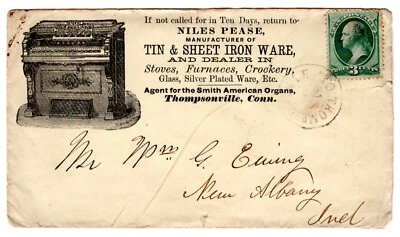 If not called for in Ten Days, return to
NILES PEASE,
MANUFACTURER OF
TIN & SHEET IRON WARE,
AND DEALER IN
Stoves, Furnaces, Crockery,
Glass, Silver Plated Ware, Etc.
Agent for the Smith American Organs,
Thompsonville, Conn.
Mr Wm G. Ewing
New Albany
Ind